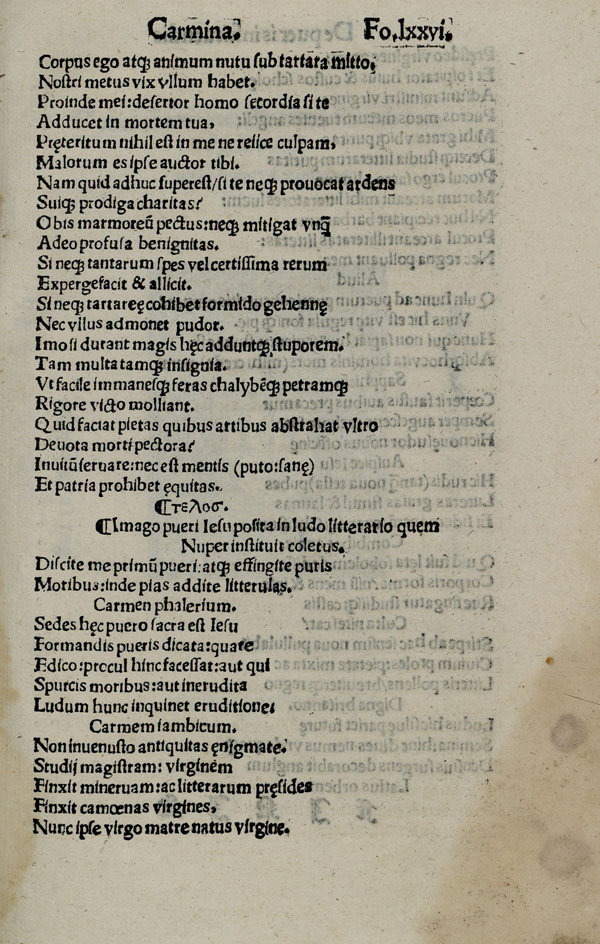 Carmina. Fo.lxxvi.
Corpus ego atqꝫ animum nutu sub tartara mitto,
Nostri metus vix vllum habet.
Proinde mei:desertor homo secordia si te
Adducet in mortem tua,
Pręteritum nihil est in me ne reiice culpam,
Malorum es ipse auctor tibi.
Nam quid adhuc superest/si te neqꝫ prouocat ardens
Suiqꝫ prodiga charitas?
O bis marmoreū pectus:neqꝫ mitigat vnq̄
Adeo profusa benignitas.
Si neqꝫ tantarum spes vel certissima rerum
Expergefacit & allicit.
Si neqꝫ tartareę cohibet formido gehennę
Nec vllus admonet pudor.
Imo si durant magis hęc adduntqꝫ stuporem.
Tam multa tamqꝫ insignia.
Vt facile immanesqꝫ feras chalybēqꝫ petramqꝫ
Rigore victo molliant.
Quid faciat pietas quibus artibus abstrahat vltro
Deuota morti pectora?
Inuitū seruare:nec est mentis (puto:sanę)
Et patria prohibet ęquitas.
¶τελοσ.
¶Imago pueri Iesu posita in ludo litterario quem
Nuper instituit coletus.
Discite me primū pueri:atqꝫ effingite puris
Moribus:inde pias addite litterulas.
Carmen phalerium.
Sedes hęc puero sacra est Iesu
Formandis pueris dicata:quare
Edico:procul hinc facessat:aut qui
Spurcis moribus:aut inerudita
Ludum hunc inquinet eruditione:
Carmem iambicum.
Non inuenusto antiquitas ęnigmate.
Studij magistram: virginem
Finxit mineruam:ac litterarum pręsides
Finxit camœnas virgines,
Nunc ipse virgo matre natus virgine.